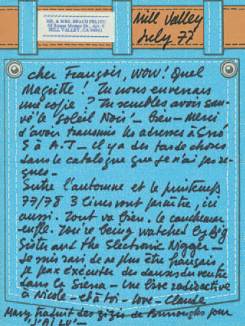 MR. & MRS. BEACH PELIEU
MILL VALLEY, CA 94941
Mill Valley
July 77
Cher François, WOW! Quel
Magritte! Tu nous enverrais
une copie? Tu sembles avoir sau-
vé le "Soleil Noir" - Bien - Merci
d'avoir transmis les adresses à
S à A.T - Il y a des tas de choses
dans le catalogue que je n'ai pas re-
çues -
Entre l'automne et le printemps
77/78 3 livres vont paraître, ici
aussi. Tout va bien. le cauchemar
enfle. You're being watched by Big
Sister and The Electronic Nigger -
Je suis ravi de ne plus être français,
je peux exécuter des danses du ventre
dans la Sierra - Une bise radioactive
à Nicole - et à toi - love - Claude
Mary traduit des de Burroughs pour
"J'ai lu" -